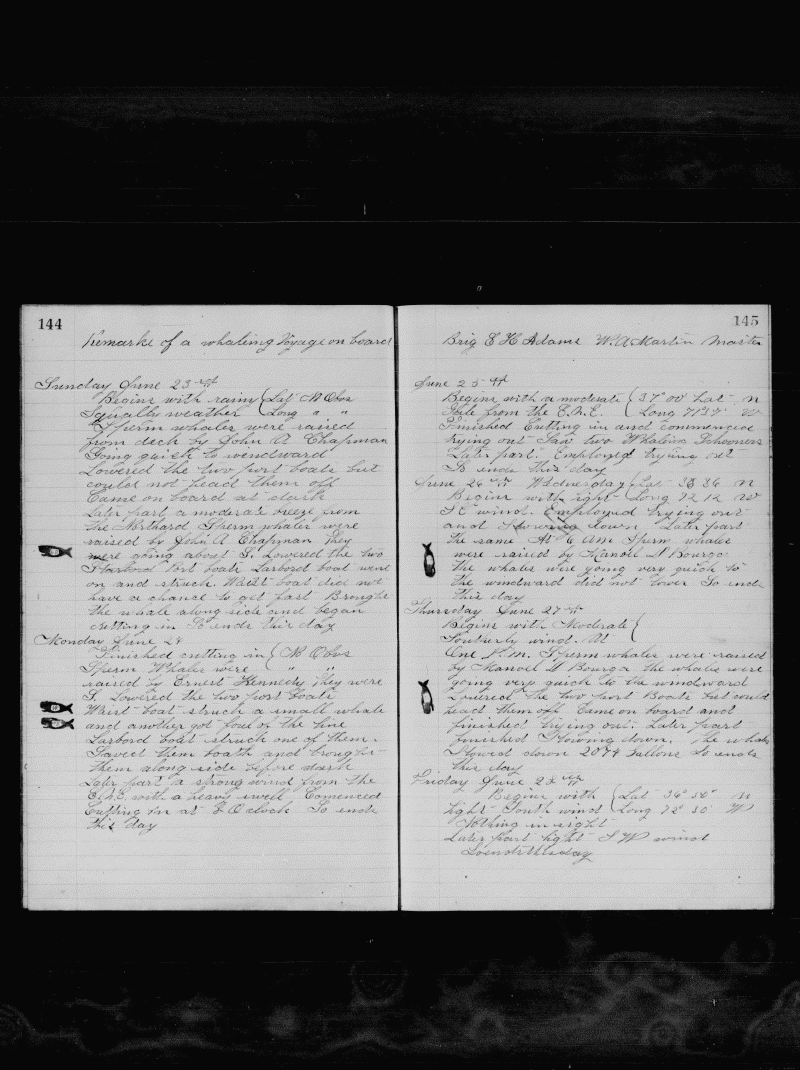 144
Remarks of a whaleing Voyage on board
Sunday June 23
Begins with rain Lat N Obs
Squally weather Long " "
Sperm whales were raised
from deck by John A Chapman
Going quick to windward
Lowered the two port boats but
could not head them off
Came on board at dark
Later part a moderate breeze from
the Northard Sperm whales were
raised by John A Chapman They
were going about S. Lowered the two
Port boats Larbord boat went
on and struck. Waist boat did not
have a chance to get fast Brought
the whale along side and began
cutting in So ends this day
Monday June 24
Finished cutting in N Obs
Sperm Whales were " "
raised by Ernest Kennedy They were
S. Lowered the two port boats
Waist boat struck a small whale
and another got foul of the line
Larbord boat struck one of them.
Saved them boath and brought
them along side before dark
Later part a strong wind from the
E.N.E. with a heavy swell Comenced
Cutting in at 8 Oclock So ends
this day
145
Brig E H Adams W. A Martin Master
June 25
Begins with a moderate 37° 00' Lat N
Gale from the E.N.E. Long W
Finished Cutting in and Commenced
trying out Saw two Whaling Schooners
Later part. Employed trying out
So ends this day
June 26 Wednesday Lat 36 36 N
Begins with light Long 72 12 W
S E wind. Employed trying out
and Stowing down Later part
the same At AM Sperm whales
were raised by Manoel
The whales were going very quick to
the windward did not lower So ends
this day
Thursday June 27
Begins with Moderate
Southerly wind. At
One P.m. Sperm whales were raised
by Manoel the whales were
going very quick to the windward
Lowered the two port Boats but could
head them off Came on board and
finished trying out. Later part
finished Stowing down. the whales
Stowed down 2074 Gallons So ends
this day
Friday June 28
Begins with Lat 36° N
light South wind Long 72° 30' W
Nothing in sight
Later part light S W wind
So ends this day